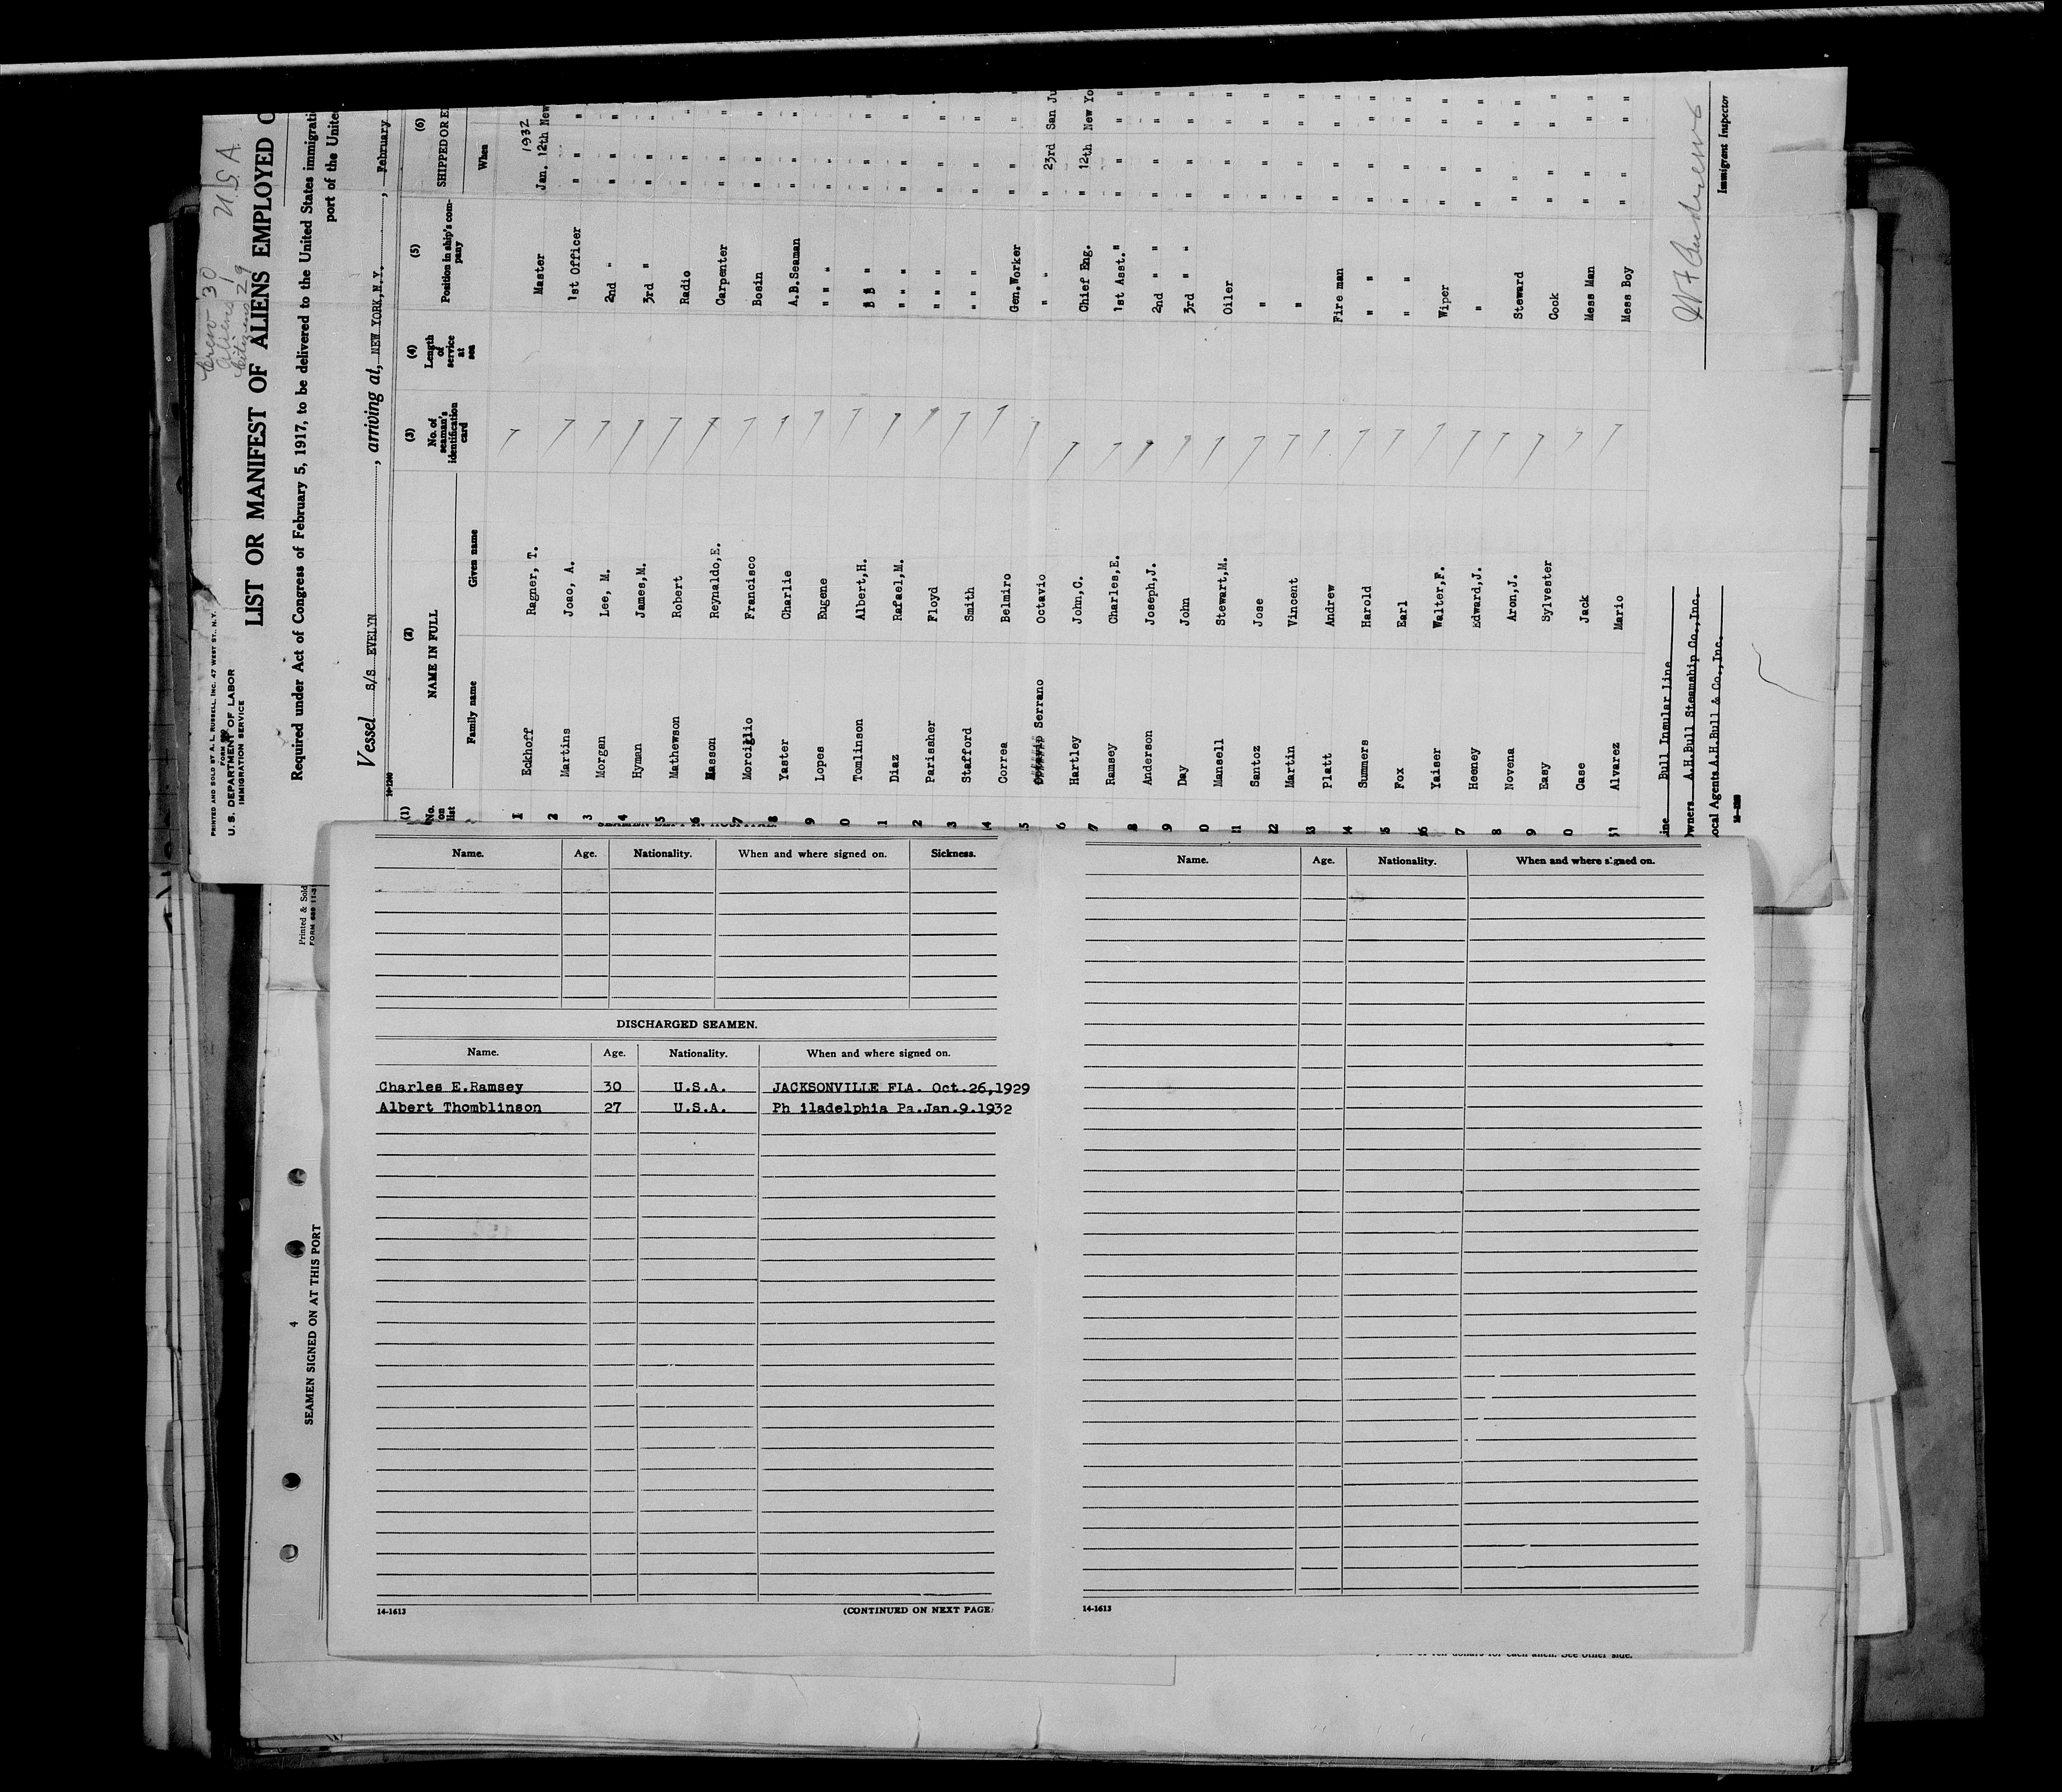 Crew 30
Aliens 1
Citizens 29
U.S.A.
PRINTED AND SOLD BY A. L. RUSSELL, INC. 47 WEST ST., N.Y.
U. S. DEPARTMENT OF LABOR
IMMIGRATION SERVICE
LIST OR MANIFEST OF ALIENS EMPLOYED O
Required under Act of Congress of February 5, 1917, to be delivered to the United States immigrati
port of the United
Vessel S/S EVELYN, arriving at, NEW YORK,N.Y., February
14-1240
(1) (2) (3) (4) (5) (6)
No. on list NAME IN FULL No. of seaman's identification card Length of service at sea Position in ship's company SHIPPED OR E
Family name Given name When
1932
1 Eckhoff Ragner, T. Master Jan. 12th New
2 Martins Joao, A. 1st Officer " " "
3 Morgan Lee, M. 2nd " " " "
4 Hyman James,M. 3rd " " " "
5 Mathewson Robert Radio " " "
6 Masson Reynaldo,E. Carpenter " " "
7 Morciglio Francisco Bosin " " "
8 Yaster Charlie A.B.Seaman " " "
9 Lopes Eugene " " " " " "
0 Tomlinson Albert,H. " " " " "
1 Diaz Rafael,M. " " " " " "
2 Parissher Floyd " " " " " "
3 Stafford Smith " " " " " "
4 Correa Belmiro Gen.Worker " " "
5 Serrano Octavio " " " 23rd San Ju
6 Hartley John,C. Chief Eng. " 12th New Yo
7 Ramsey Charles,E. 1st Asst." " " "
8 Anderson Joseph,J. 2nd " " " " "
9 Day John 3rd " " " " "
0 Mansell Stewart,M. Oiler " " "
1 Santoz Jose " " " "
2 Martin Vincent " " " "
3 Platt Andrew Fire man " " "
4 Summers Harold " " " " "
5 Fox Earl " " " " "
6 Yaiser Walter,F. Wiper " " "
7 Heeney Edward,J. " " " "
8 Novena Aron,J. Steward " " "
9 Easy Sylvester Cook " " "
0 Case Jack Mess Man " " "
31 Alvarez Mario Mess Boy " " "
ine Bull Insular line
Owners A.H.Bull Steamship Co.,Inc.
ocal Agents A.H.Bull & Co., Inc.
Immigrant Inspector
Printed & Sold
FORM 689 11-3
4
SEAMEN SIGNED ON AT THIS PORT
Name. Age. Nationality. When and where signed on. Sickness.
DISCHARGED SEAMEN.
Name. Age. Nationality. When and where signed on.
Charles E.Ramsey 30 U.S.A. JACKSONVILLE FLA. Oct.26,1929
Albert Thomblinson 27 U.S.A. Ph iladelphia Pa.Jan.9.1932
14-1613 (CONTINUED ON NEXT PAGE)
Name. Age. Nationality. When and where signed on.
14-1613
of ten dollars for each alien. See other side.